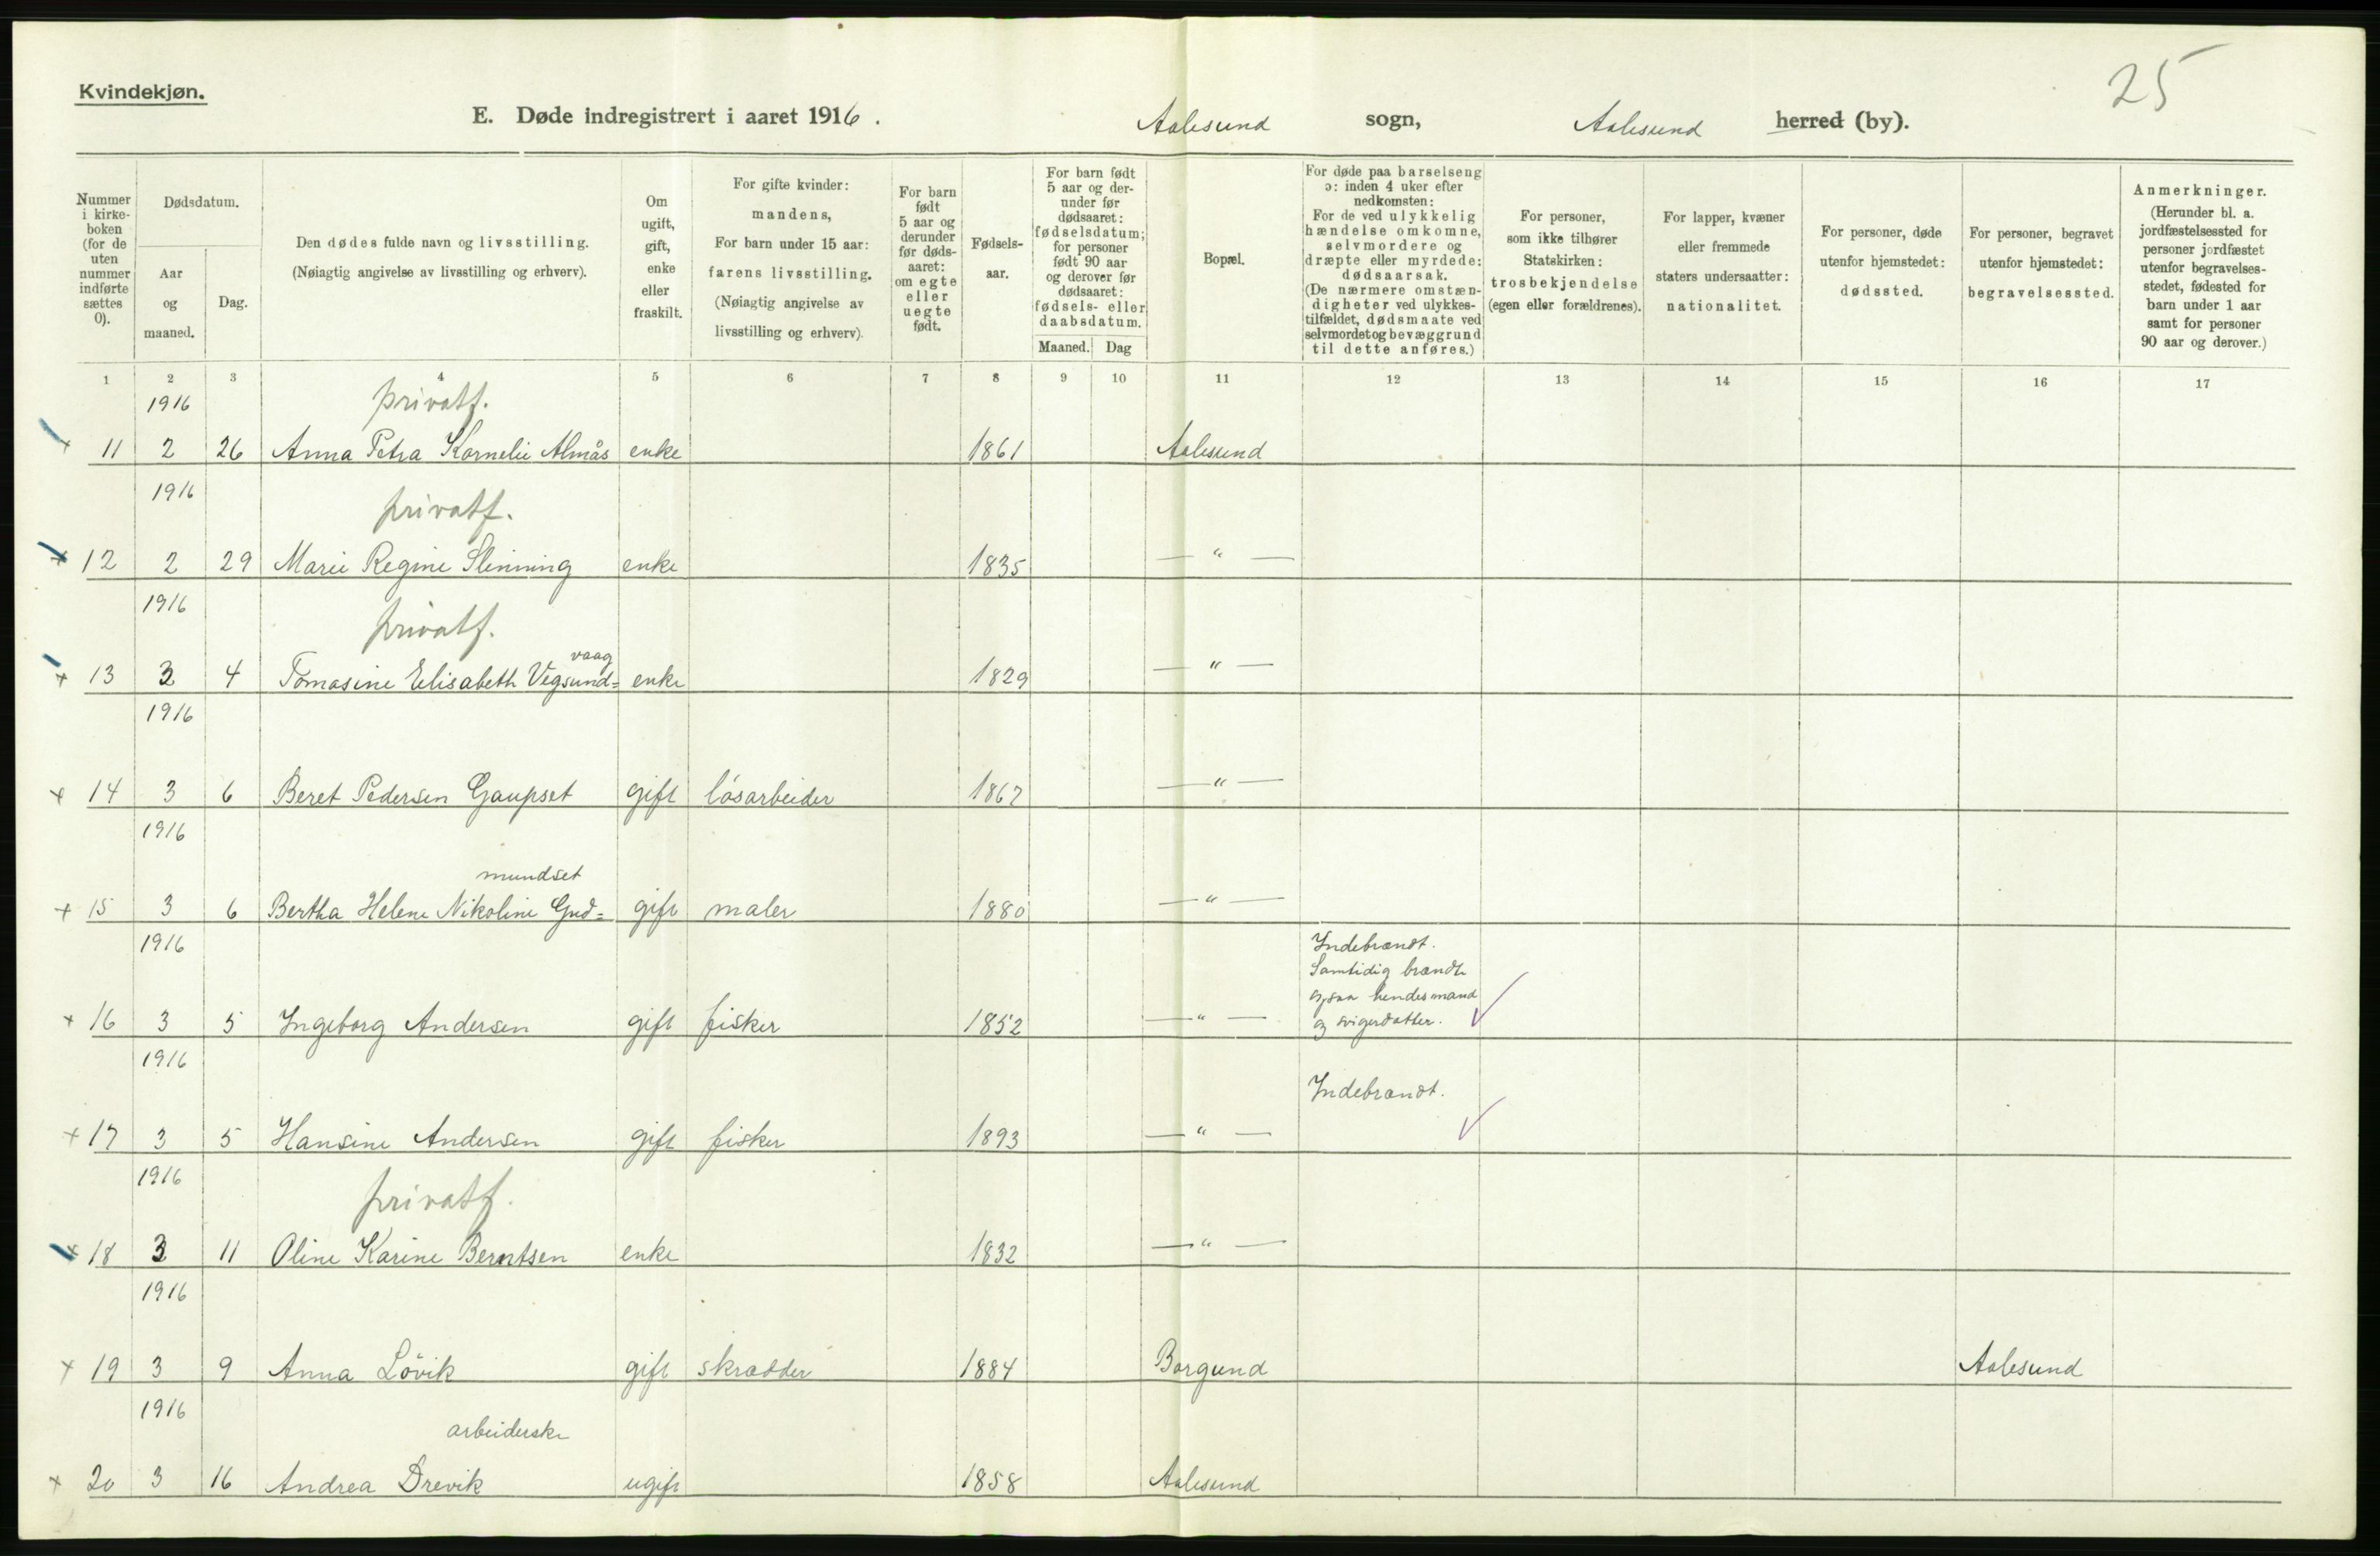 Kvindekjøn.
25
E. Døde indregistrert i aaret 1916. Aalesund sogn, Aalesund herred (by).
Nummer i kirke-boken (for de uten nummer indførte sættes 0).
Dødsdatum.
Aar og maaned.
Dag.
Den dødes fulde navn og livsstilling. (Nøiagtig angivelse av livsstilling og erhverv).
Om ugift, gift, enke eller fraskilt.
For gifte kvinder: mandens, For barn under 15 aar: farens livsstilling. (Nøiagtig angivelse av livsstilling og erhverv).
For barn født 5 aar og derunder før døds-aaret: om egte eller uegte født.
Fødsels-aar.
For barn født 5 aar og der-under før dødsaaret: fødselsdatum; for personer født 90 aar og derover før dødsaaret: fødsels- eller daabsdatum.
Maaned. Dag
Bopæl.
For døde paa barselseng ɔ: inden 4 uker efter nedkomsten: For de ved ulykkelig hændelse omkomne, selvmordere og dræpte eller myrdede: dødsaarsak. (De nærmere omstæn-digheter ved ulykkes-tilfældet, dødsmaate ved selvmordet og bevæggrund til dette anføres.)
For personer, som ikke tilhører Statskirken: trosbekjendelse (egen eller forældrenes).
For lapper, kvæner eller fremmede staters undersaatter: nationalitet.
For personer, døde utenfor hjemstedet: dødssted.
For personer, begravet utenfor hjemstedet: begravelsessted.
Anmerkninger. (Herunder bl. a. jordfæstelsessted for personer jordfæstet utenfor begravelses-stedet, fødested for barn under 1 aar samt for personer 90 aar og derover.)
1 2 3 4 5 6 7 8 9 10 11 12 13 14 15 16 17
1916 privatf.
11 2 26 Anna Petra Kornelie Almås enke 1861 Aalesund
1916
privatf.
12 2 29 Marie Regine Slinning enke 1835 — " —
1916
privatf.
vaag
13 3 4 Tomasine Elisabeth Vegsund= enke 1829 — " —
1916
14 3 6 Beret Pedersen Gaupset gift løsarbeider 1867 — " —
1916
mundset
15 3 6 Bertha Helene Nikoline Gud= gift maler 1880 — " —
1916 Indebrændt.
Samtidig brændte
ogsaa hendes mand
16 3 5 Ingeborg Andersen gift fisker 1852 — " — og svigerdatter.
1916
Indebrændt.
17 3 5 Hansine Andersen gift fisker 1893 — " —
1916
privatf.
18 3 11 Oline Karine Berntsen enke 1832 — " —
1916
19 3 9 Anna Lövik gift skrædder 1884 Borgund Aalesund
1916
arbeiderske
20 3 16 Andrea Drevik ugift 1858 Aalesund